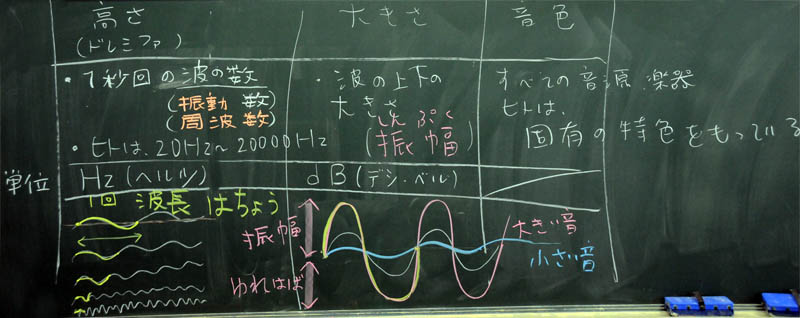 高さ
(ドレミファ)
・1秒回の波の数
(振動 数)
(周波数)
・ヒトは、20Hz〜20000Hz
大きさ
・波の上下の
大きさ
しんぷく
(振幅)
音色
すべての音源、楽器
ヒトは、
固有の特色をもっている
単位
Hz (ヘルツ)
dB (デシ・ベル)
1回 波長 はちょう
振幅
ゆれはば
大きい音
小さい音